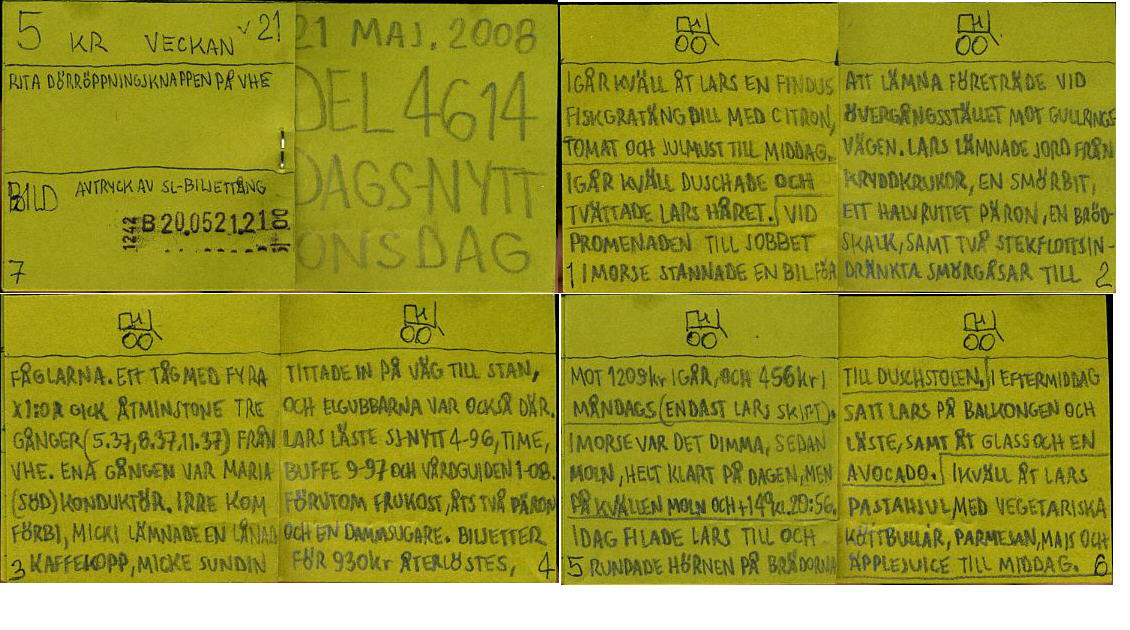 5 KR VECKAN v 21
RITA DÖRRÖPPNINGSKNAPPEN PÅ VHE
BILD AVTRYCK AV SL-BILJETTÅNG
1242 B 20.0521.21
7
21 MAJ. 2008
DEL 4614
DAGS-NYTT
ONSDAG
IGÅR KVÄLL ÅT LARS EN FINDUS
FISKGRATÄNG DILL MED CITRON,
TOMAT OCH JULMUST TILL MIDDAG.
IGÅR KVÄLL DUSCHADE OCH
TVÄTTADE LARS HÅRET. VID
PROMENADEN TILL JOBBET
1 I MORSE STANNADE EN BIL FÖR
ATT LÄMNA FÖRETRÄDE VID
ÖVERGÅNGSSTÄLLET MOT GULLRINGS
VÄGEN. LARS LÄMNADE JORD FRÅN
KRYDDKRUKOR, EN SMÖRBIT,
ETT HALVRUTTET PÄRON, EN BRÖD-
SKALK, SAMT TVÅ STEKFLOTTSIN-
DRÄNKTA SMÖRGÅSAR TILL 2
FÅGLARNA. ETT TÅG MED FYRA
X1:OR GICK ÅTMINSTONE TRE
GÅNGER (5.37, 8.37, 11.37) FRÅN
VHE. ENA GÅNGEN VAR MARIA
(SÖD) KONDUKTÖR. IRRE KOM
FÖRBI, MICKI LÄMNADE EN LÅNAD
3 KAFFEKOPP, MICKE SUNDIN
TITTADE IN PÅ VÄG TILL STAN,
OCH ELGUBBARNA VAR OCKSÅ DÄR.
LARS LÄSTE SJ-NYTT 4-96, TIME,
BUFFE 9-97 OCH VÅRDGUIDEN 1-08.
FÖRUTOM FRUKOST, ÅTS TVÅ PÄRON
OCH EN DAMMSUGARE. BILJETTER
FÖR 930kr ÅTERLÖSTES, 4
MOT 1209kr IGÅR, OCH 456kr I
MÅNDAGS (ENDAST LARS SKIFT).
I MORSE VAR DET DIMMA, SEDAN
MOLN, HELT KLART PÅ DAGEN, MEN
PÅ KVÄLLEN MOLN OCH +14° KL. 20:56.
IDAG FILADE LARS TILL OCH
5 RUNDADE HÖRNEN PÅ BRÄDORNA
TILL DUSCHSTOLEN. I EFTERMIDDAG
SATT LARS PÅ BALKONGEN OCH
LÄSTE, SAMT ÅT GLASS OCH EN
AVOCADO. IKVÄLL ÅT LARS
PASTAHJUL MED VEGETARISKA
KÖTTBULLAR, PARMESAN, MAJS OCH
ÄPPLEJUICE TILL MIDDAG. 6